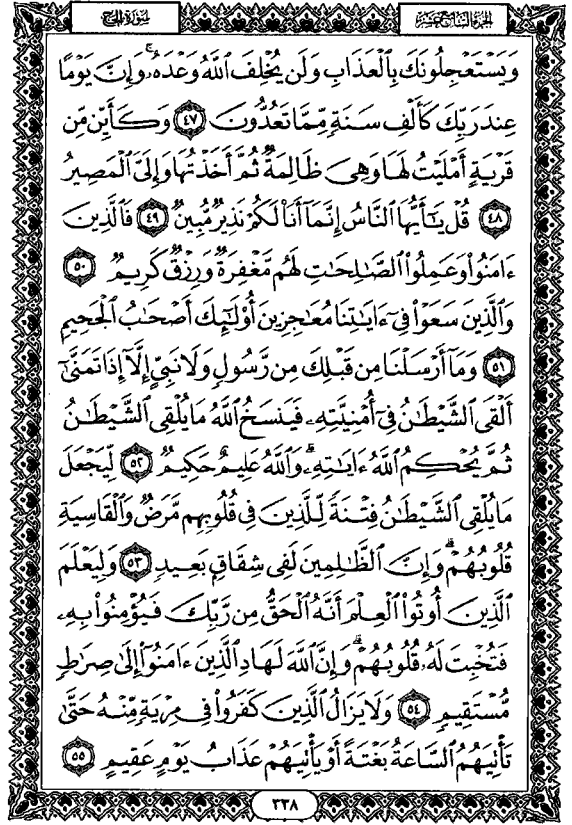 الجزء السابع عشر
سورة الحج
وَيَسۡتَعۡجِلُونَكَ بِٱلۡعَذَابِ وَلَن يُخۡلِفَ ٱللَّهُ وَعۡدَهُۥۚ وَإِنَّ يَوۡمًا
عِندَ رَبِّكَ كَأَلۡفِ سَنَةٖ مِّمَّا تَعُدُّونَ ٤٧ وَكَأَيِّن مِّن
قَرۡيَةٍ أَمۡلَيۡتُ لَهَا وَهِيَ ظَالِمَةٞ ثُمَّ أَخَذۡتُهَا وَإِلَيَّ ٱلۡمَصِيرُ
٤٨ قُلۡ يَٰٓأَيُّهَا ٱلنَّاسُ إِنَّمَآ أَنَا۠ لَكُمۡ نَذِيرٞ مُّبِينٞ ٤٩ فَٱلَّذِينَ
ءَامَنُواْ وَعَمِلُواْ ٱلصَّٰلِحَٰتِ لَهُم مَّغۡفِرَةٞ وَرِزۡقٞ كَرِيمٞ ٥٠
وَٱلَّذِينَ سَعَوۡاْ فِيٓ ءَايَٰتِنَا مُعَٰجِزِينَ أُوْلَٰٓئِكَ أَصۡحَٰبُ ٱلۡجَحِيمِ
٥١ وَمَآ أَرۡسَلۡنَا مِن قَبۡلِكَ مِن رَّسُولٖ وَلَا نَبِيٍّ إِلَّآ إِذَا تَمَنَّىٰٓ
أَلۡقَى ٱلشَّيۡطَٰنُ فِيٓ أُمۡنِيَّتِهِۦ فَيَنسَخُ ٱللَّهُ مَا يُلۡقِي ٱلشَّيۡطَٰنُ
ثُمَّ يُحۡكِمُ ٱللَّهُ ءَايَٰتِهِۦۗ وَٱللَّهُ عَلِيمٌ حَكِيمٞ ٥٢ لِّيَجۡعَلَ
مَا يُلۡقِي ٱلشَّيۡطَٰنُ فِتۡنَةٗ لِّلَّذِينَ فِي قُلُوبِهِم مَّرَضٞ وَٱلۡقَاسِيَةِ
قُلُوبُهُمۡۗ وَإِنَّ ٱلظَّٰلِمِينَ لَفِي شِقَاقِۭ بَعِيدٖ ٥٣ وَلِيَعۡلَمَ
ٱلَّذِينَ أُوتُواْ ٱلۡعِلۡمَ أَنَّهُ ٱلۡحَقُّ مِن رَّبِّكَ فَيُؤۡمِنُواْ بِهِۦ
فَتُخۡبِتَ لَهُۥ قُلُوبُهُمۡۗ وَإِنَّ ٱللَّهَ لَهَادِ ٱلَّذِينَ ءَامَنُوٓاْ إِلَىٰ صِرَٰطٖ
مُّسۡتَقِيمٖ ٥٤ وَلَا يَزَالُ ٱلَّذِينَ كَفَرُواْ فِي مِرۡيَةٖ مِّنۡهُ حَتَّىٰ
تَأۡتِيَهُمُ ٱلسَّاعَةُ بَغۡتَةً أَوۡ يَأۡتِيَهُمۡ عَذَابُ يَوۡمٍ عَقِيمٍ ٥٥
٣٣٨